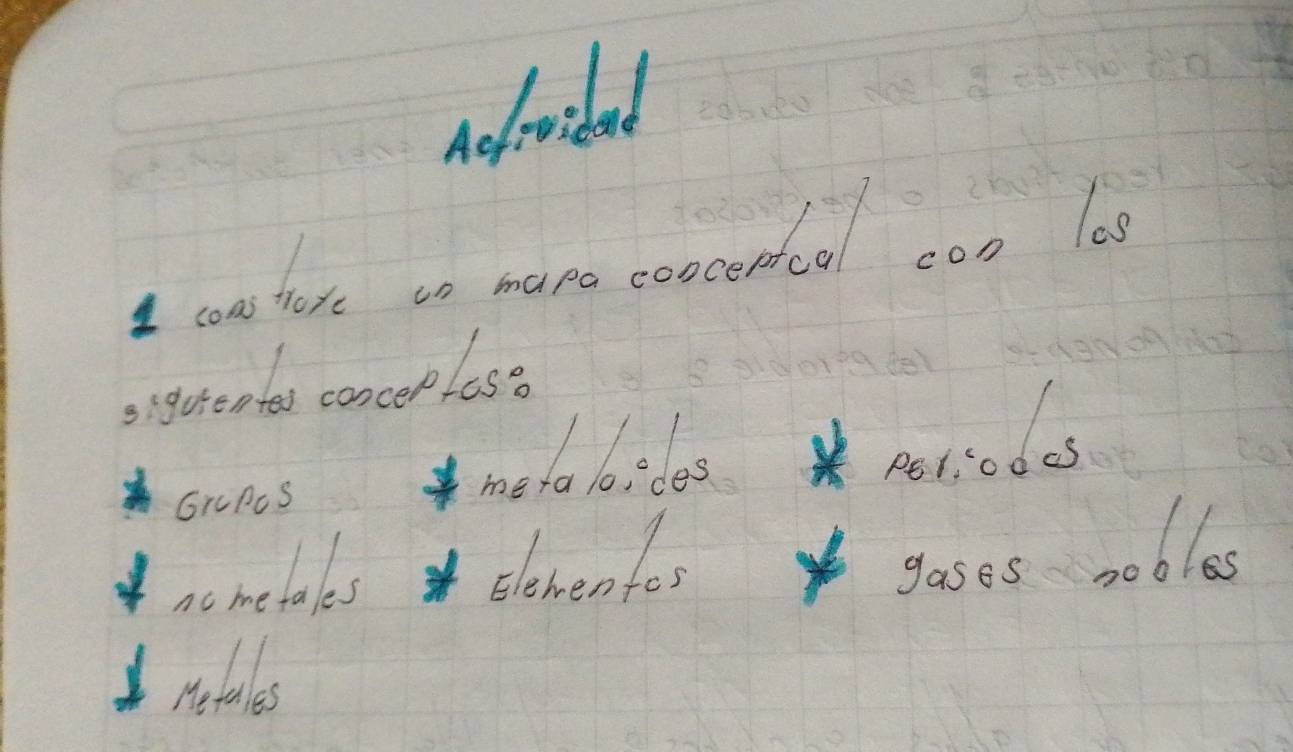 Actividad
1 construye un mapa conceptual con los
siguientes conceptos:
* Grupos * metaloides * Periodos
* no metales * Elementos * gases nobles
* Metales